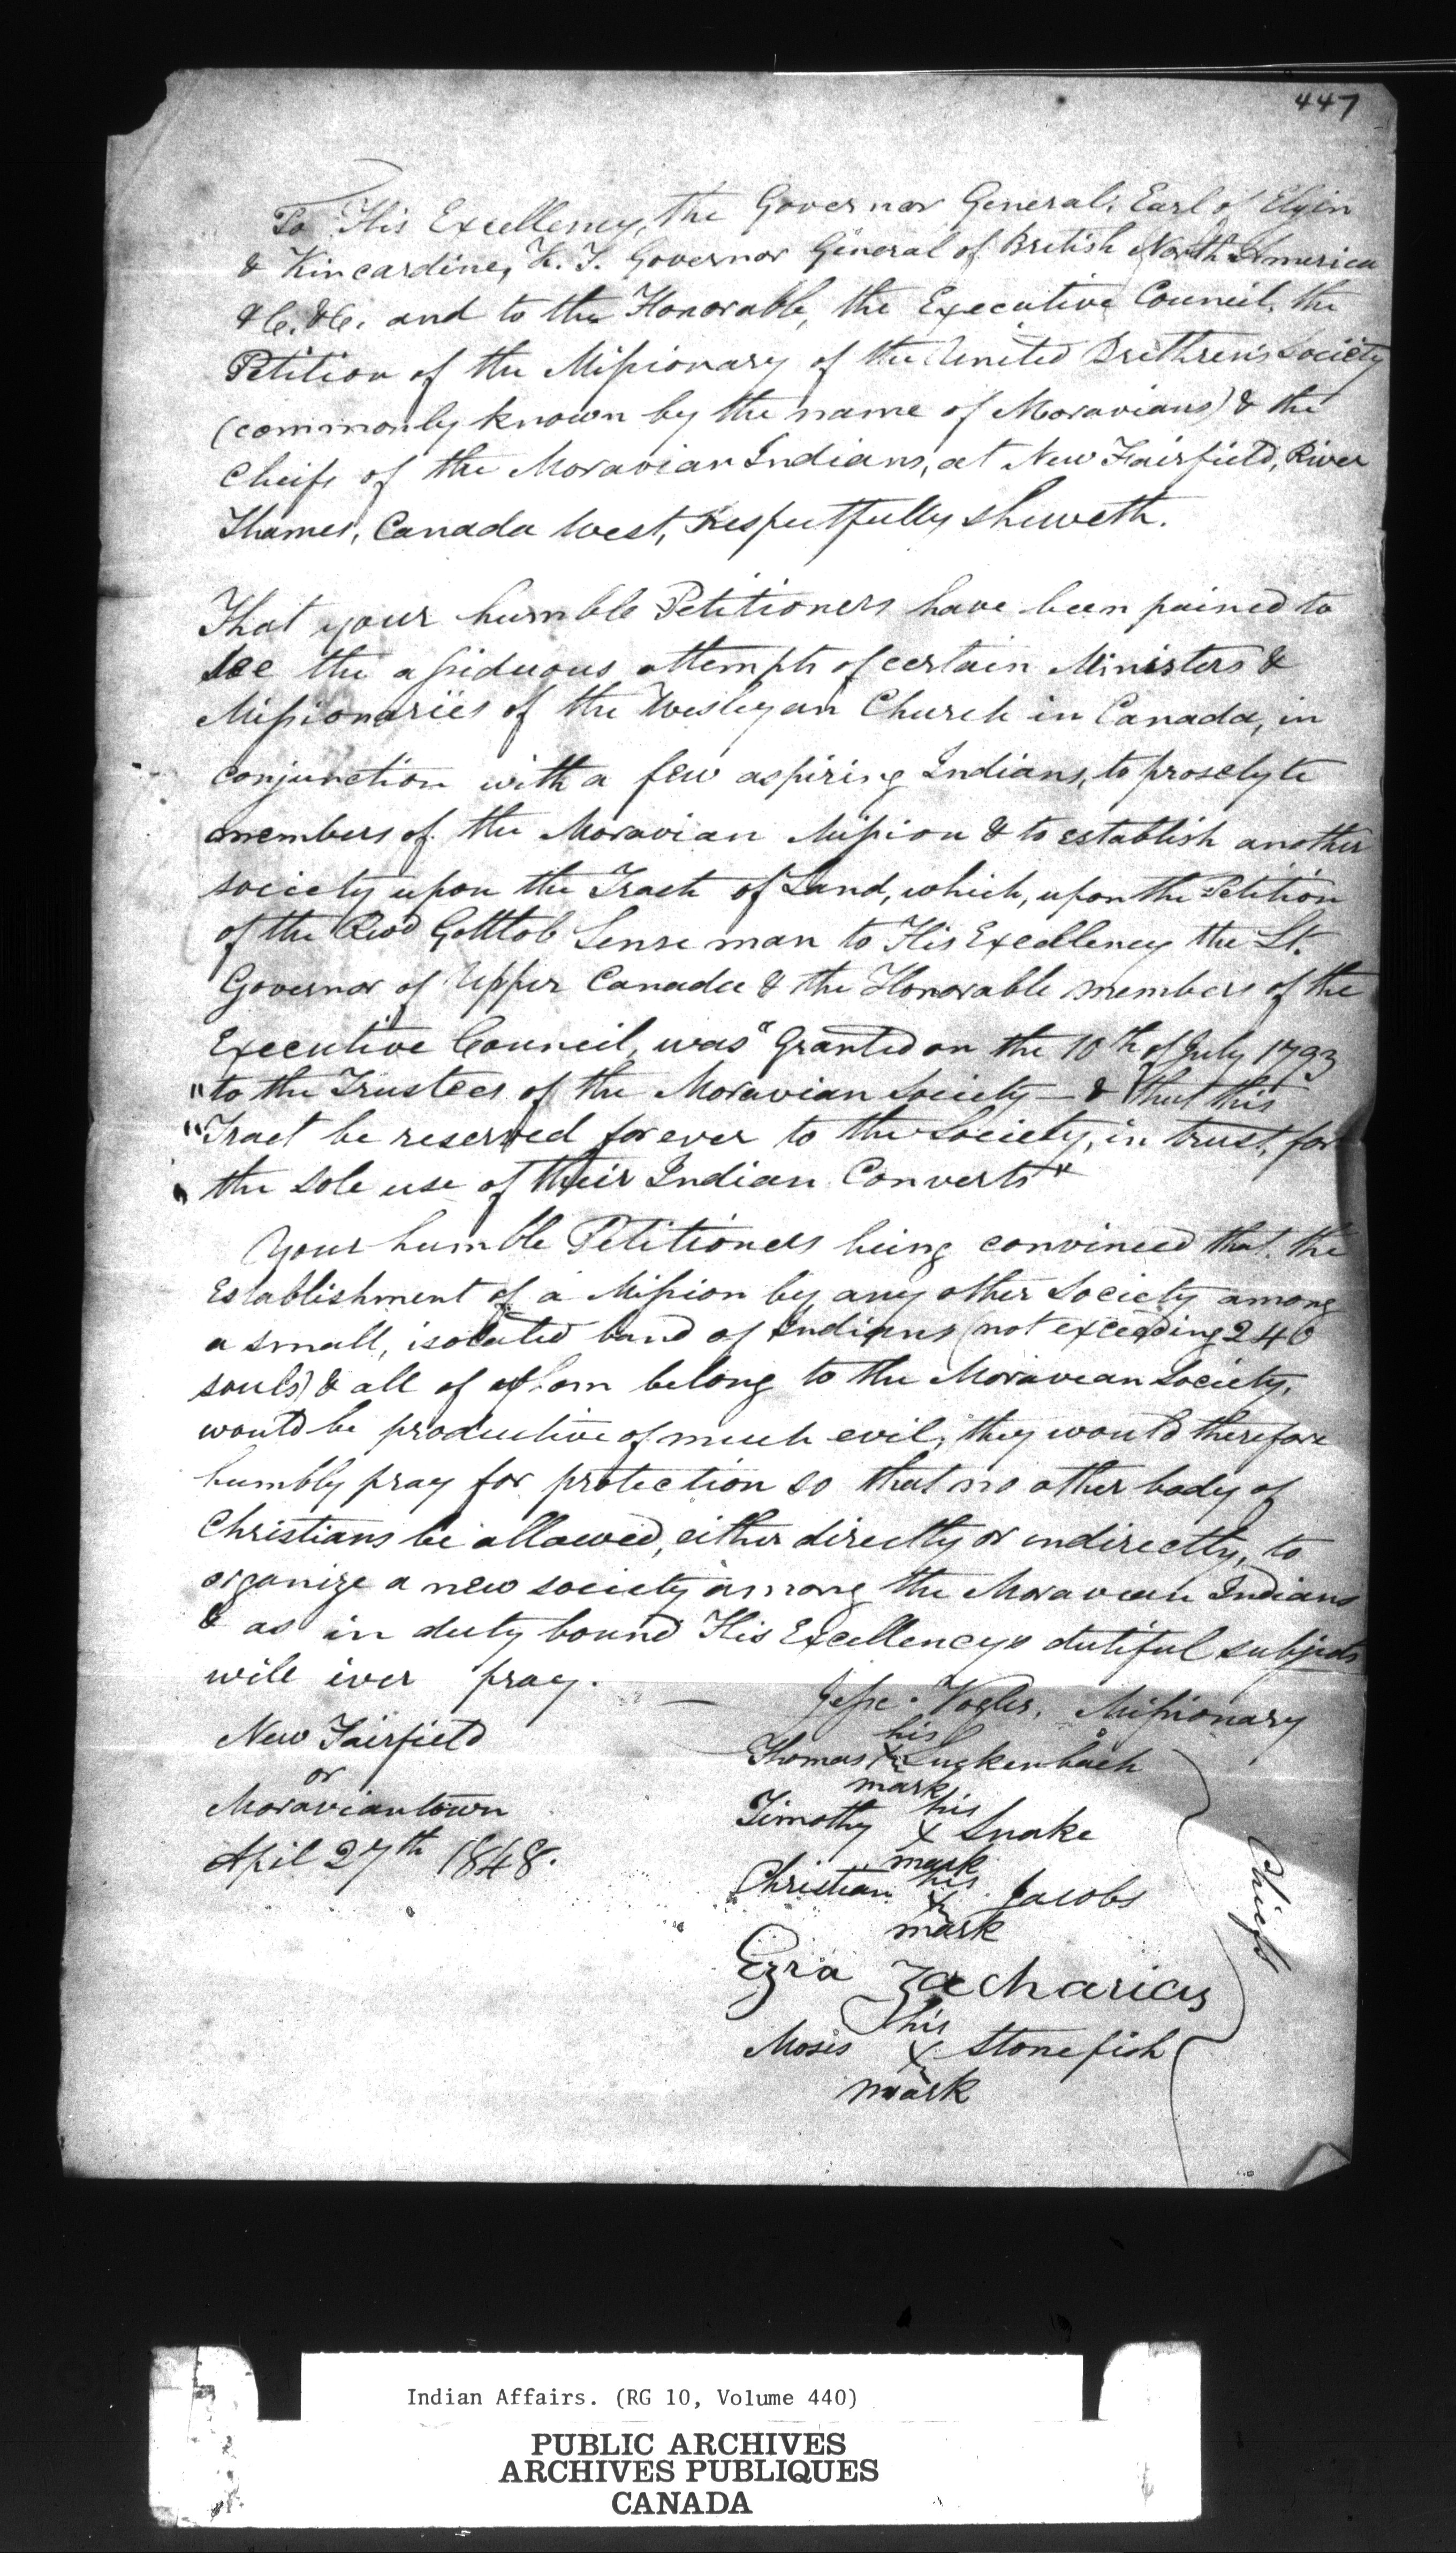 447
To His Excellency, the Governor General, Earl of Elgin
& Kincardine, K. T. Governor General of British North America
&c. &c. and to the Honorable, the Executive Council, the
Petition of the Missionary of the United Brethren's Society
(commonly known by the name of Moravians) & the
Cheifs of the Moravian Indians, at New Fairfield, River
Thames, Canada West, respectfully sheweth.
That your humble Petitioners have been pained to
see the assiduous attempts of certain Ministers &
Missionaries of the Wesleyan Church in Canada, in
conjunction with a few aspiring Indians, to proselyte
members of the Moravian Mission & to establish another
society upon the Tract of Land, which, upon the Petition
of the Revd Gottlob Senseman to His Excellency the Lt.
Governor of Upper Canada & the Honorable members of the
Executive Council, was "Granted on the 10th of July 1793
"to the Trustees of the Moravian Society — & that this
"Tract be reserved forever to the Society, in trust, for
"the sole use of their Indian Converts"
Your humble Petitioners being convinced that the
Establishment of a Mission by any other Society among
a small, isolated band of Indians (not exceeding 240
souls) & all of whom belong to the Moravean Society,
would be productive of much evil, they would therefore
humbly pray for protection so that no other body of
Christians be allowed, either directly or indirectly, to
organize a new society among the Moravian Indians
& as in duty bound His Excellencys dutiful subjects
will ever pray. —
Jesse Vogler, Missionary
New Fairfield
or
Moraviantown
April 27th 1848.
his
Thomas X Luckenbach
mark
his
Timothy X Snake
mark
his
Christian X Jacobs
mark
Ezra Zacharias
his
Moses X Stonefish
mark
Chiefs
Indian Affairs. (RG 10, Volume 440)
PUBLIC ARCHIVES
ARCHIVES PUBLIQUES
CANADA